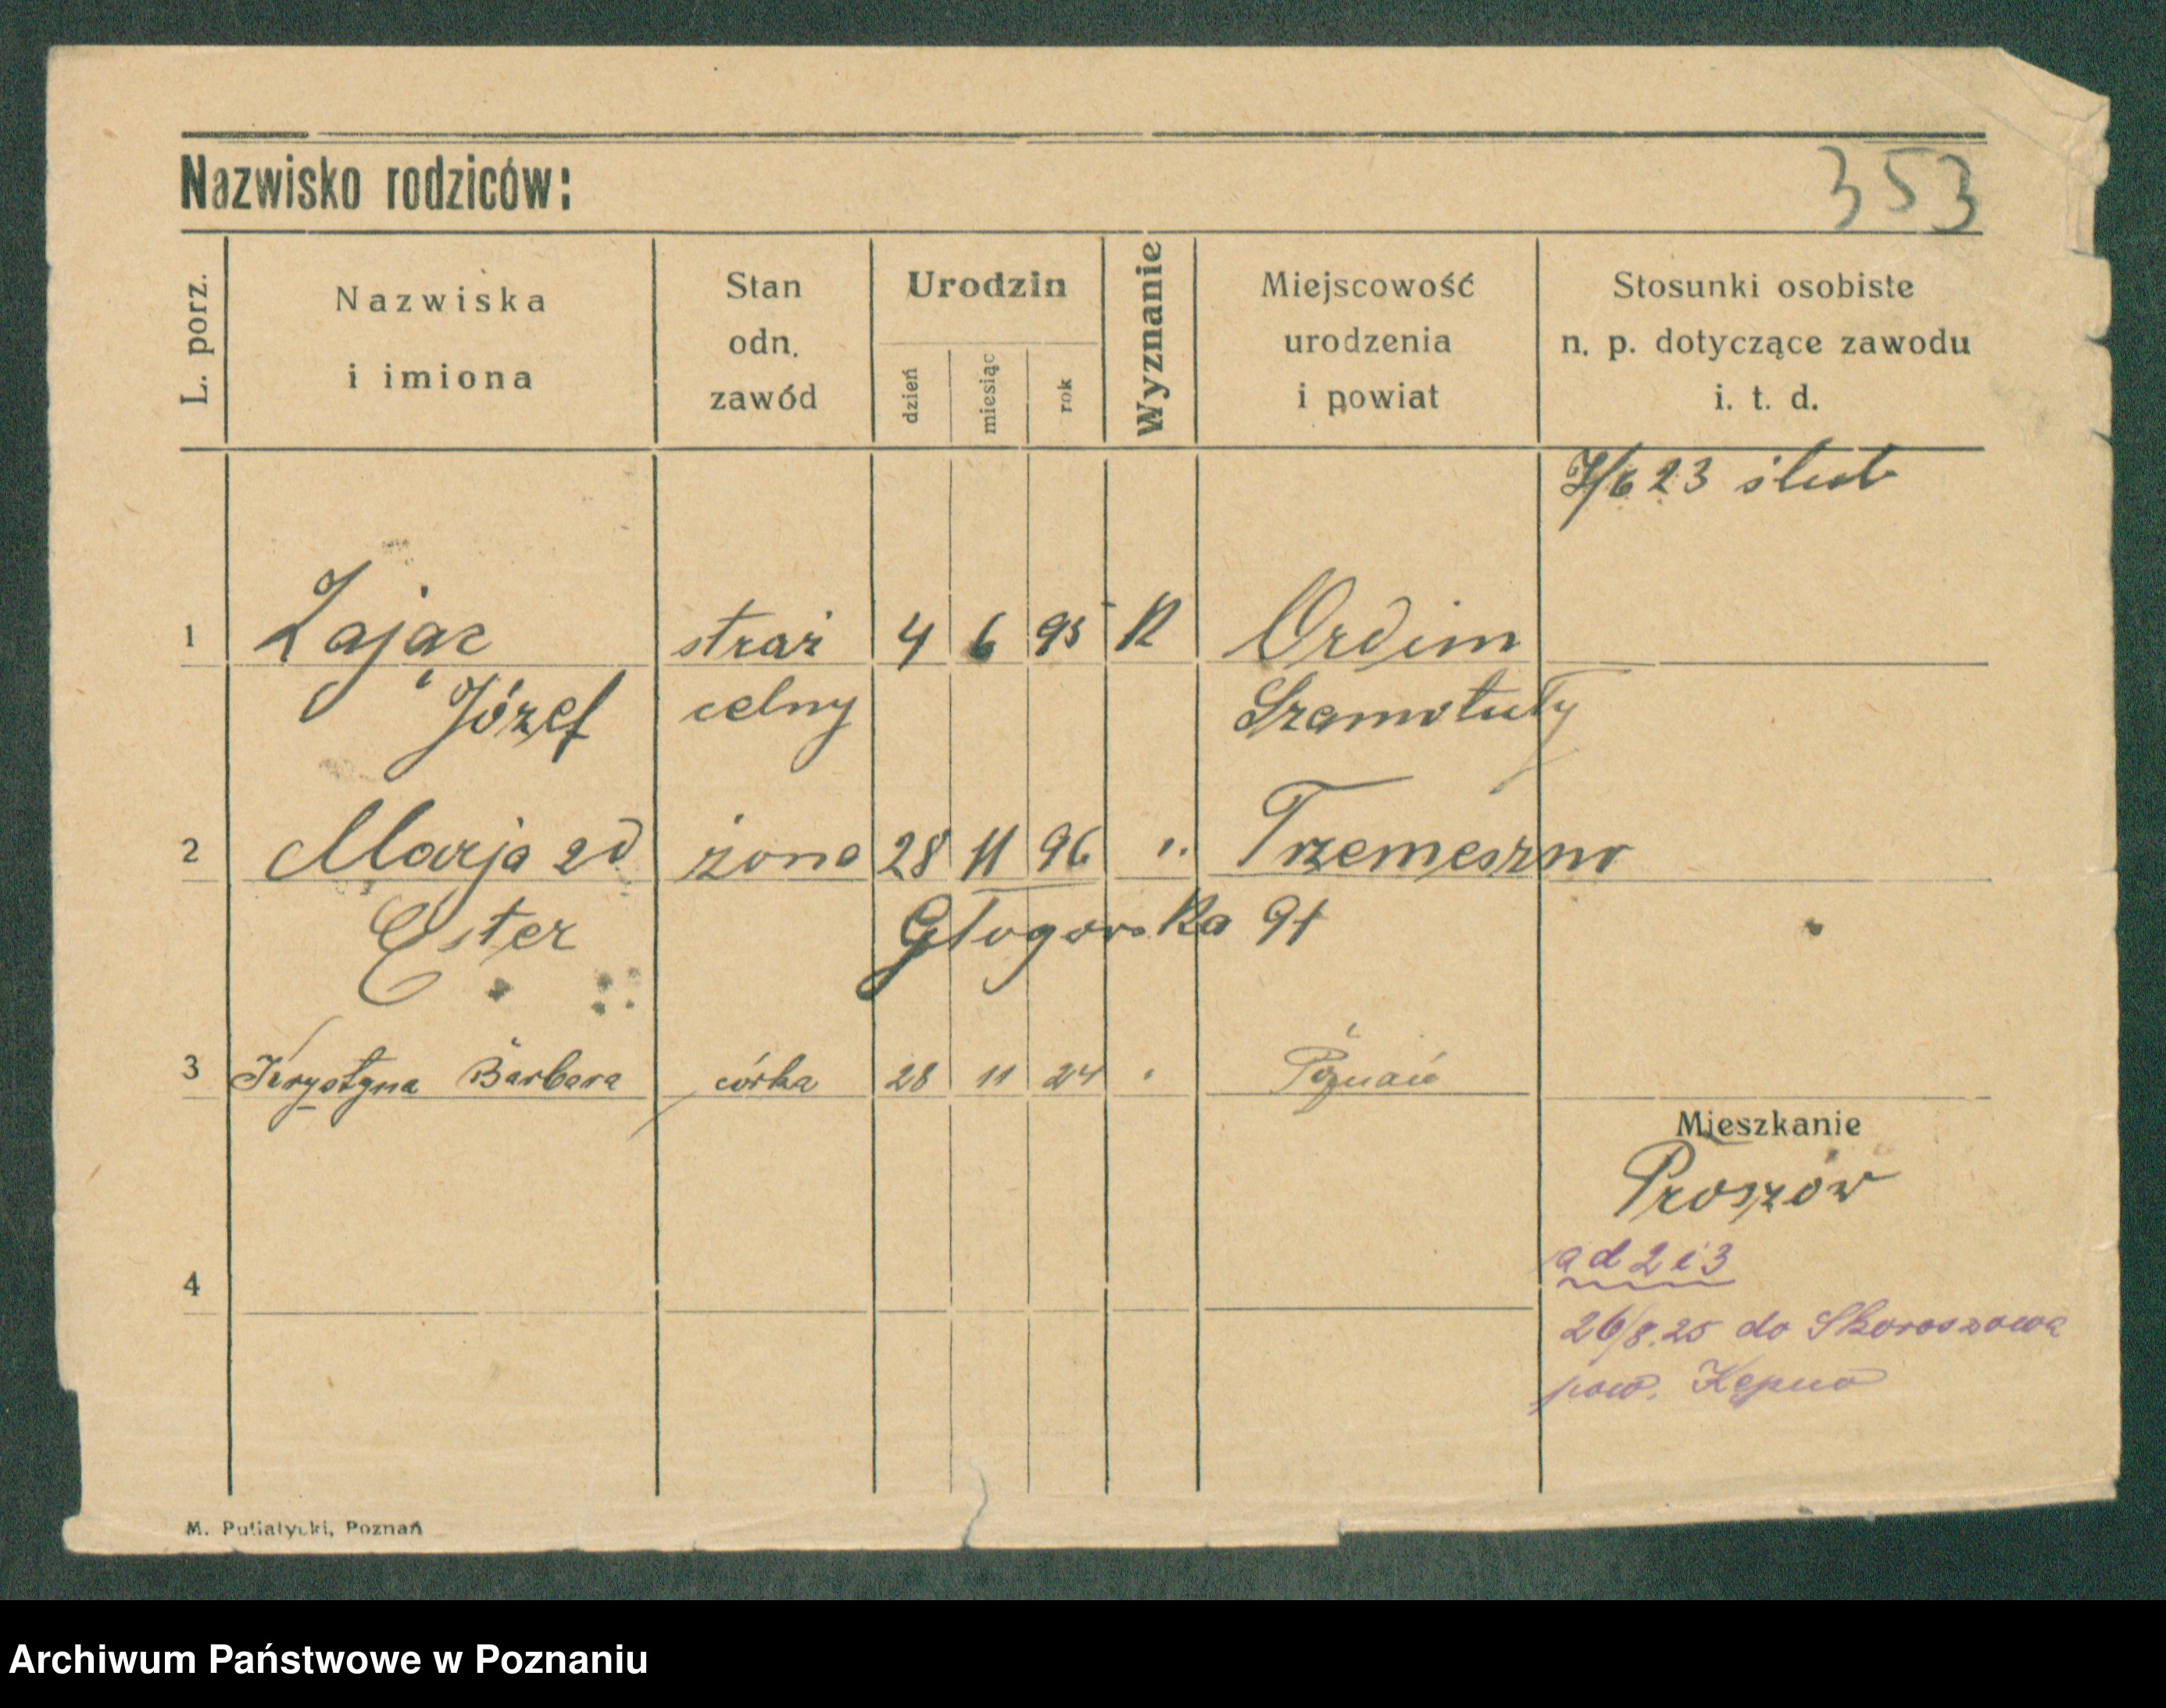 Nazwisko rodziców:
353
L. porz.
Nazwiska
i imiona
Stan
odn.
zawód
Urodzin
dzień
miesiąc
rok
Wyznanie
Miejscowość
urodzenia
i powiat
Stosunki osobiste
n. p. dotyczące zawodu
i. t. d.
7/6 23 ślub
1 Zając straż 4 6 95 K Ordzin
Józef celny Szamotuły
2 Marja zd żona 28 11 96 ". Trzemeszno
Ester Głogowska 91
3 Krystyna Barbara córka 28 11 24 " Poznań
Mieszkanie
Proszów
ad 2 i 3
4
26/8.25 do Skoroszowa
pow. Kępno
M. Putiatycki, Poznań
Archiwum Państwowe w Poznaniu